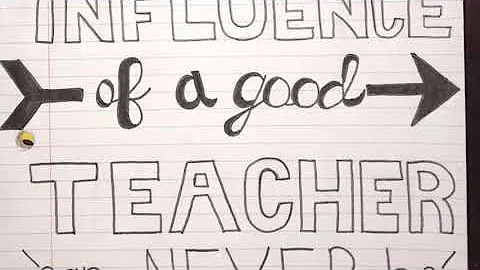 INFLUENCE
of a good
TEACHER
can NEVER be